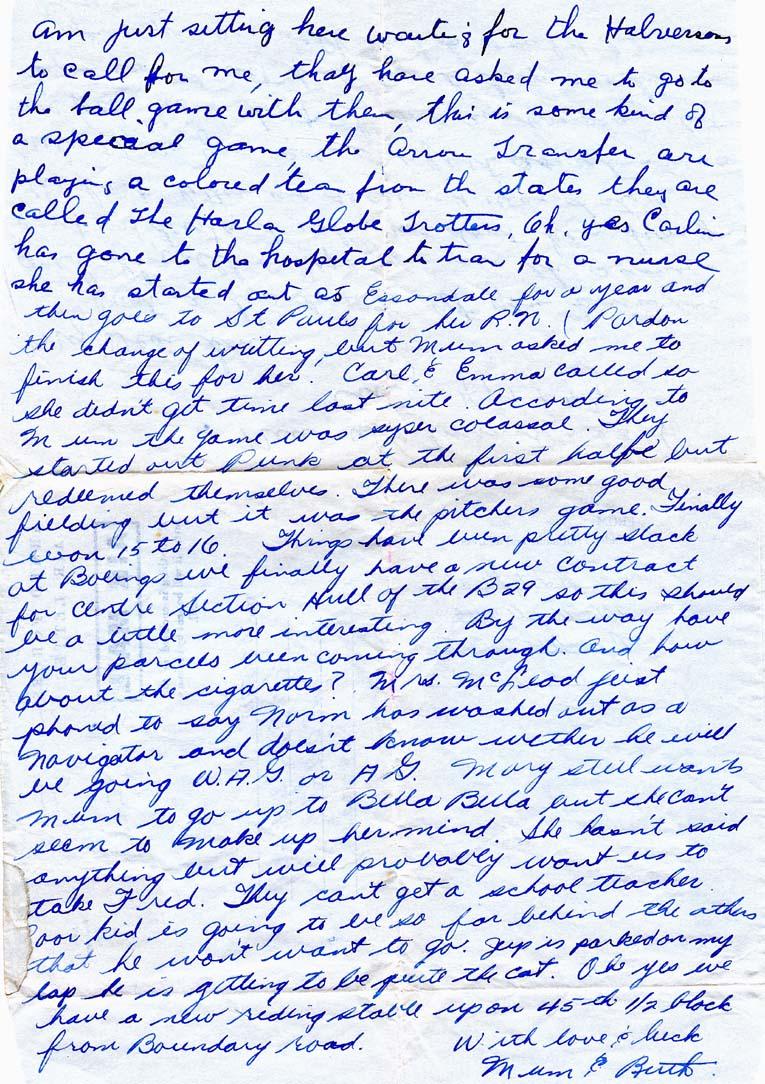 am just setting here waiting for the Halversons
to call for me, thay have asked me to go to
the ball game with them, this is some kind of
a special game, the Arrow Transfer are
playing a colored team from th states they are
called The Harlem Globe Trotters, Oh, yes Carlin
has gone to the hospital to train for a nurse
she has started out at Essondale for a year and
then goes to St Pauls for her R.N. (Pardon
the change of writting, but Mum asked me to
finish this for her. Carl & Emma called so
she didn't get time last nite. According to
Mum the game was super colassal. They
started out Punk at the first halfe but
redeemed themselves. There was some good
fielding but it was the pitchers game. Finally
won 15 to 16. Things have been pretty slack
at Boeings we finally have a new contract
for Centre Section Hull of the B29 so this should
be a little more interesting. By the way have
your parcels been coming through. And how
about the cigarettes? Mrs. McLeod just
phoned to say Norm has washed out as a
Navigator and doesn't know wether he will
be going W.A.G. or A G. Mary still wants
Mum to go up to Bella Bella but she can't
seem to make up her mind. She hasn't said
anything but will probably want us to
take Fred. They can't get a school teacher.
Poor kid is going to be so far behind the others
that he won't want to go. Jup is parked on my
lap he is getting to be quite the cat. Oh yes we
have a new reding stable up on 45th 1/2 block
from Boundary road. With love & luck
Mum & Beth.